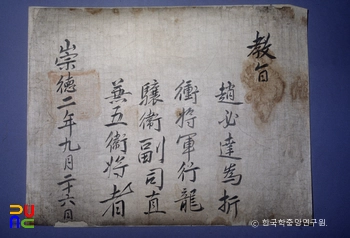 敎旨
趙必達爲折
衝將軍行龍
驤衛副司直
兼五衛將者
崇德二年九月二十六日
ⓒ 한국학중앙연구원.